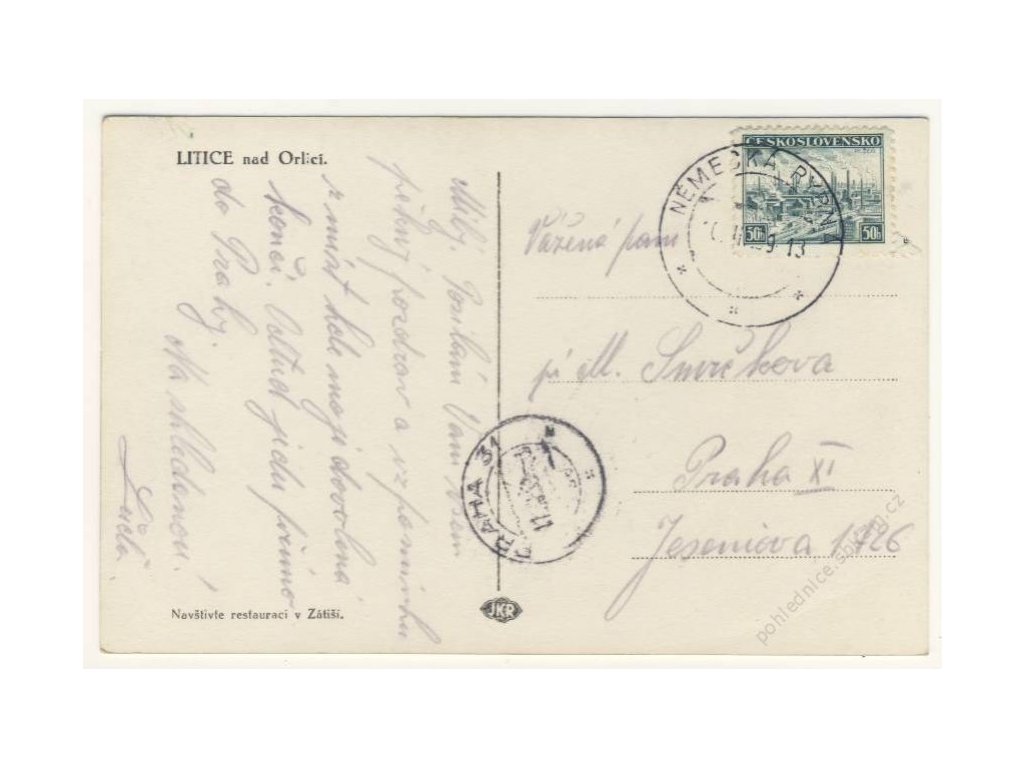 LITICE nad Orlicí.
Posílám Vám všem
pěkný pozdrav a vzpomínku
z míst kde moje dovolená
končí. Odtud jedu přímo
do Prahy.
Na shledanou!
Navštivte restauraci v Zátiší.
JKR
ČESKOSLOVENSKO
50h 50h
NĚMECKÁ RYBNÁ
Vážená paní
pí M. Smrčkova
Praha XI
Jeseniova 1126
PRAHA 31
pohlednice.sberatel.cz